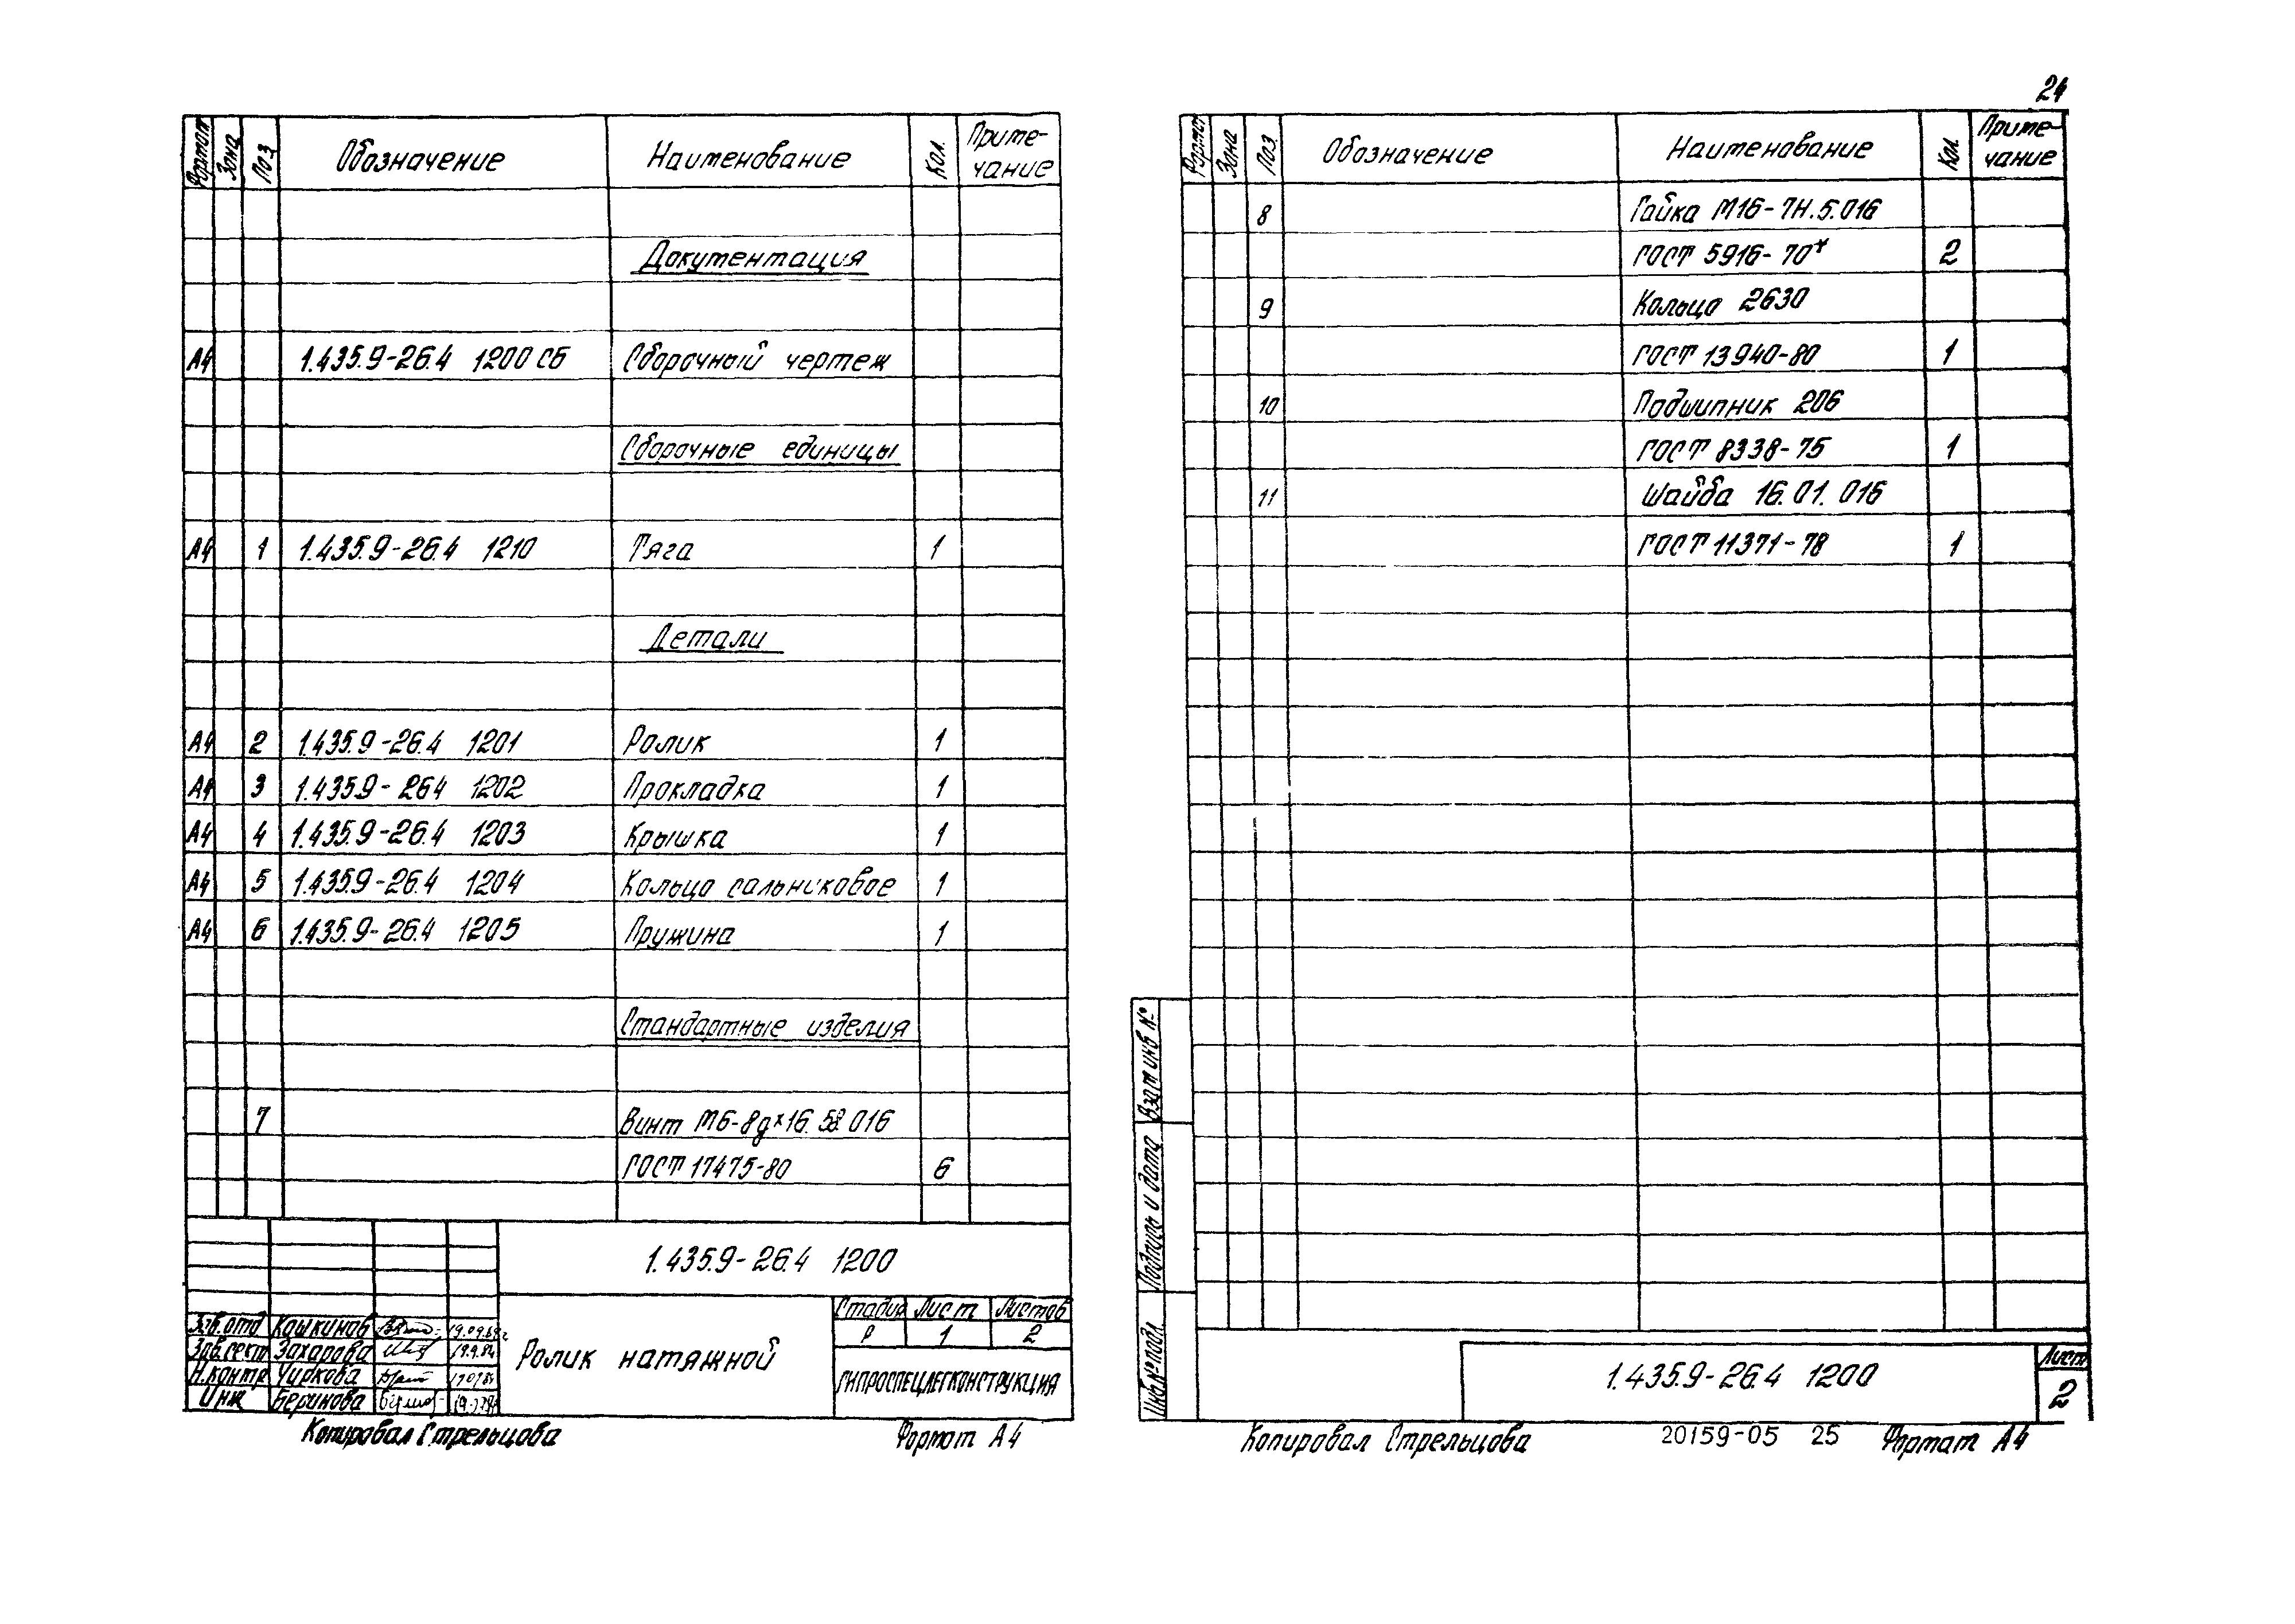 24
Формат Зона Поз. Обозначение Наименование Кол. Приме-чание
Документация
А4 1.435.9-26.4 1200 СБ Сборочный чертеж
Сборочные единицы
А4 1 1.435.9-26.4 1210 Тяга 1
Детали
А4 2 1.435.9-26.4 1201 Ролик 1
А4 3 1.435.9-26.4 1202 Прокладка 1
А4 4 1.435.9-26.4 1203 Крышка 1
А4 5 1.435.9-26.4 1204 Кольцо сальниковое 1
А4 6 1.435.9-26.4 1205 Пружина 1
Стандартные изделия
7 Винт М6-8gх16.58.016
ГОСТ 17475-80 6
1.435.9-26.4 1200
Зав.отд Кашкинов
Зав.сект Захарова 19.9.84
Н.контр Чиркова
Инж Беринова
Ролик натяжной
Стадия Лист Листов
Р 1 2
ГИПРОСПЕЦЛЕГКОНСТРУКЦИЯ
Копировал Стрельцова Формат А4
Формат Зона Поз. Обозначение Наименование Кол Приме-чание
8 Гайка М16-7Н.5.016
ГОСТ 5916-70* 2
9 Кольцо 2630
ГОСТ 13940-80 1
10 Подшипник 206
ГОСТ 8338-75 1
11 Шайба 16.01.016
ГОСТ 11371-78 1
Взам инв №
Подпись и дата
Инв.№ подл.
1.435.9-26.4 1200
Лист
2
Копировал Стрельцова 20159-05 25 Формат А4